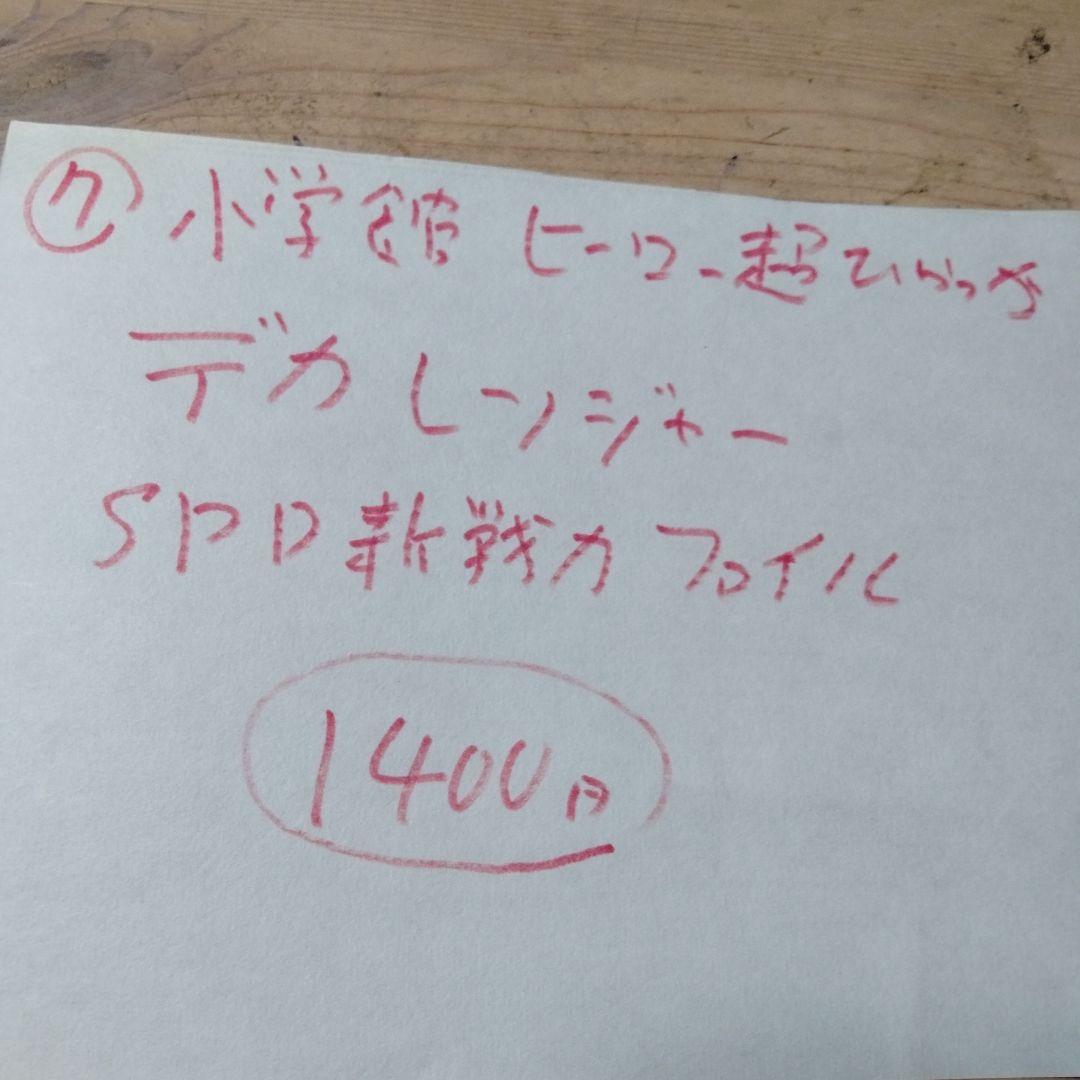 ⑦ 小学館 ヒーロー超ひゃっか
デカレンジャー
SPD新戦力ファイル
1400円